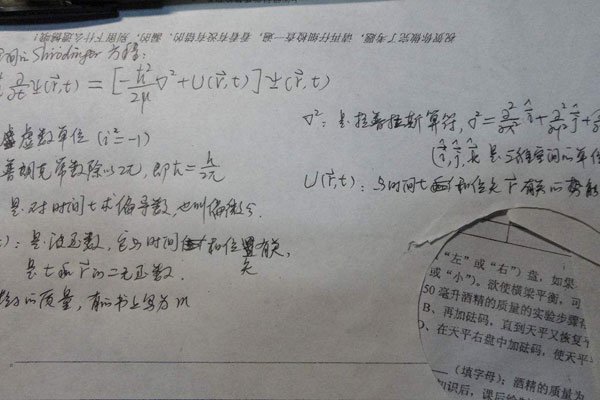 祝贺你做完了考题，请再仔细检查一遍，看看有没有错的、漏的，别留下什么遗憾哦！
间的 Shrödinger 方程：
∂/∂t Ψ(r⃗,t) = [-ħ²/2μ ∇² + U(r⃗,t)] Ψ(r⃗,t)
虚数单位 (i²=-1)
普朗克常数除以2π，即 ħ = h/2π
是对时间 t 求偏导数，也叫偏微分
)：是波函数，它与时间 和位置有关，
是 t 和 r⃗ 的二元函数.
的质量，有的书上写为 m
∇²：是拉普拉斯算符，∇² = ∂²/∂x² î + ∂²/∂y² ĵ +
(î, ĵ, k̂ 是三维空间的单位
U(r⃗,t)：与时间 t 和位矢 r⃗ 有关的势能
“左”或“右”）盘，如果
或“小”）。欲使横梁平衡，可
50 毫升酒精的质量的实验步骤
B、再加砝码，直到天平又恢复
D、在天平右盘中加砝码，使天平
（填字母）；酒精的质量为
知识后，课后